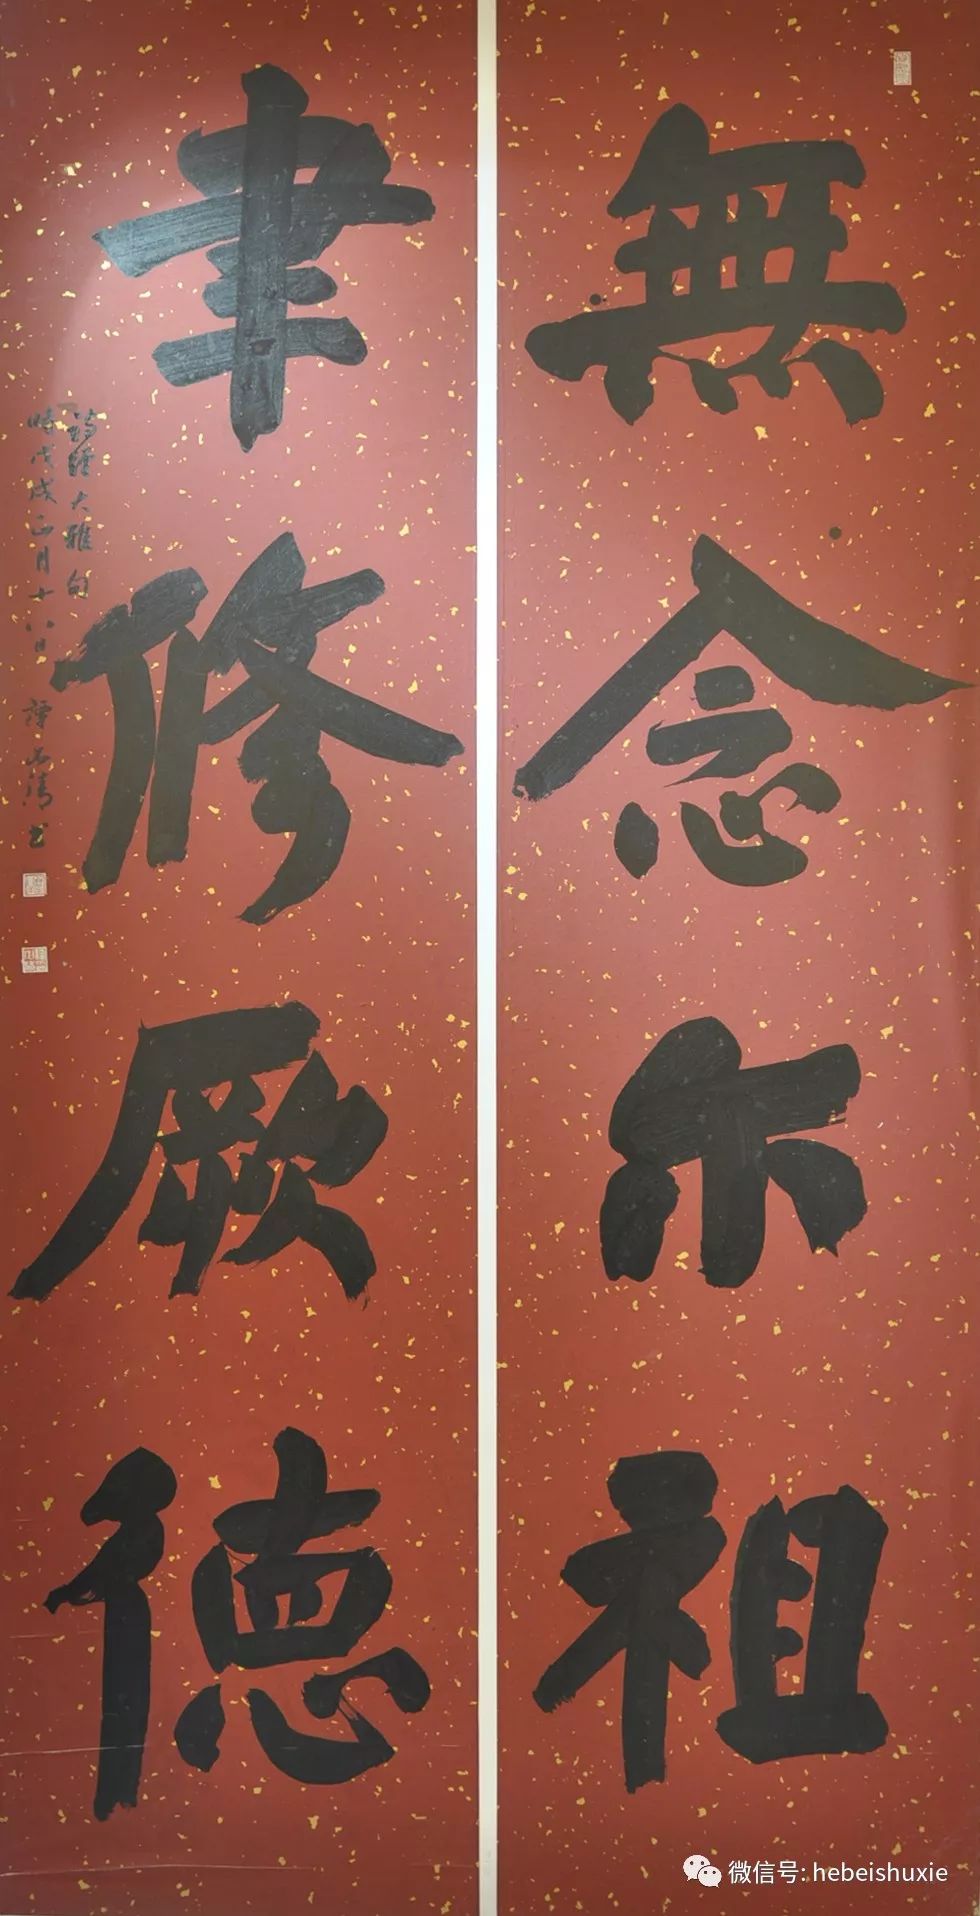 無念尔祖
聿修厥德
詩經大雅句
時戊戌正月十八日
微信号: hebeishuxie